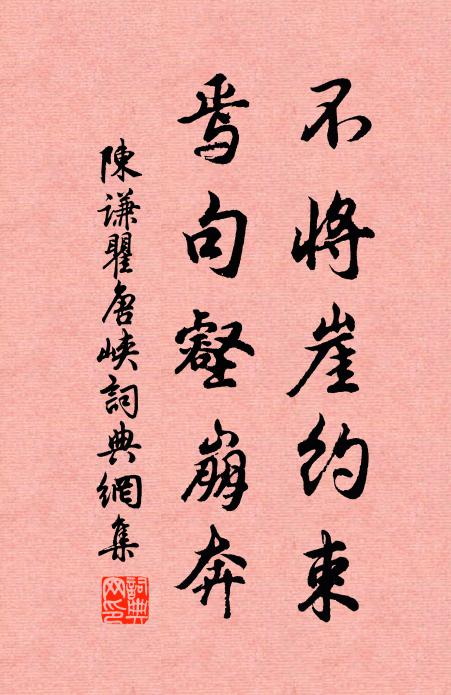 不將崖約束
焉句壑崩奔
陳謙瞿唐峽詞典網集
詞典網印